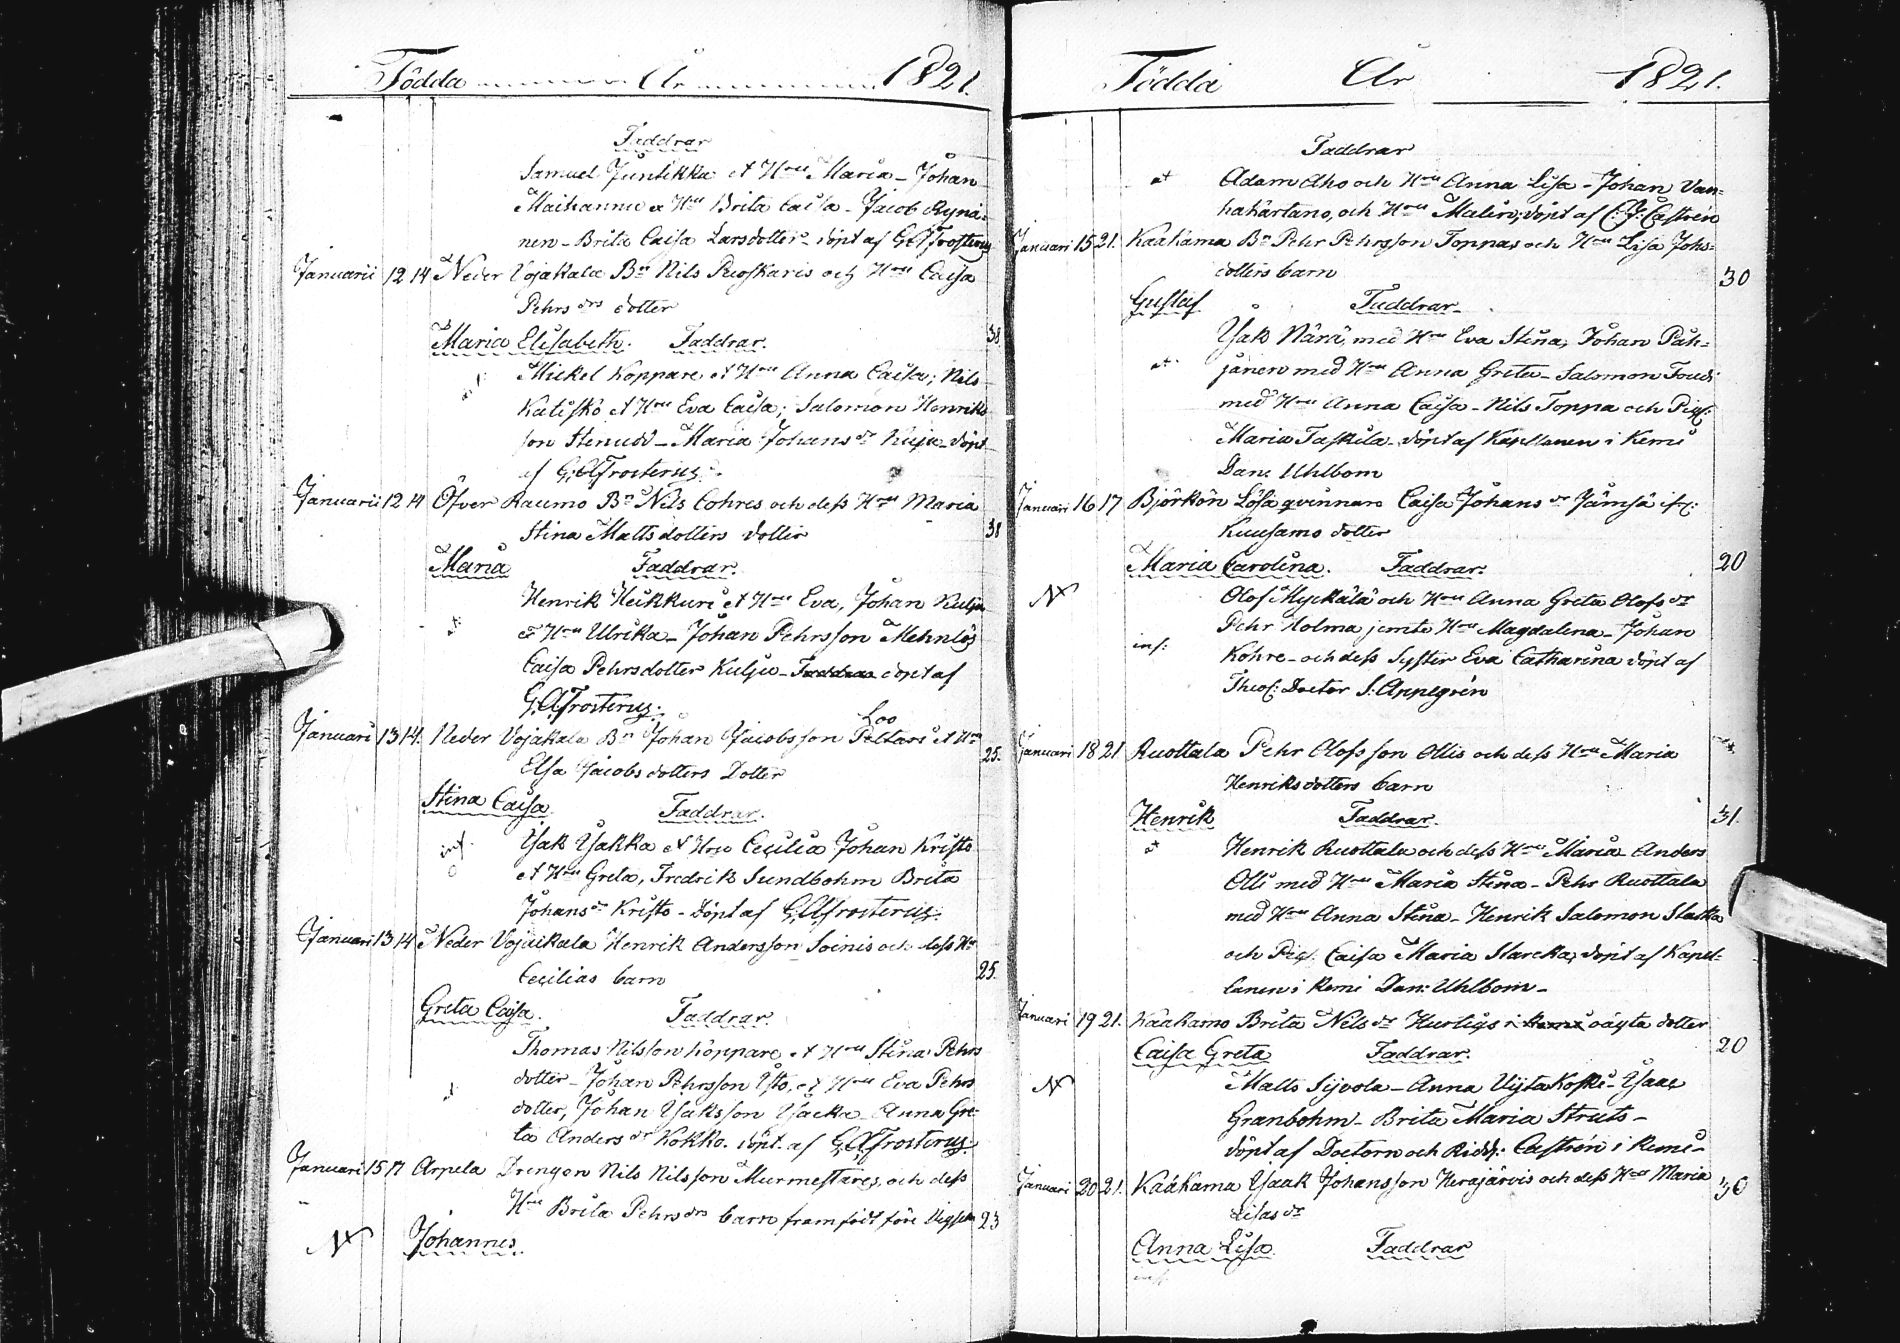 Födda År 1821.
Faddrar
Samuel Juntikka et Hru Maria - Johan
Maihannu et Hru Brita Caisa - Jacob Rynä-
nen - Brita Caisa Larsdotter - döpt af G.A. Frosterus
Januarii 12 14 Neder Vojakala Bn Nils Ruoskaris och Hru Caisa
Pehrs drs dotter
Maria Elisabeth. Faddrar. 38
Mickel Koppare et Hru Anna Caisa; Nils
et Hru Eva Caisa; Salomon Henriks
son Stenudd - Maria Johans dr Kuija - döpt
af G.A. Frosterus.
Januarii 12 14 Öfver Raumo Bn Nils Cohres och dess Hru Maria
Stina Mattsdotters dotter 38
Maria Faddrar.
Henrik Heikkuri et Hru Eva, Johan Kulju
et Hru Ulrika - Johan Pehrsson Mehnlös
Caisa Pehrsdotter Kulju - Faddrar döpt af
G.A. Frosterus.
Loo
Januari 13 14. Neder Vojakala Bn Johan Jacobsson Peltari et Hru
Elsa Jacobsdotters Dotter 25.
Stina Caisa Faddrar.
inf. Isak Isakka et Hru Cecilia Johan Kristo
et Hru Greta, Fredrik Sundbohm Brita
Johans dr Kristo - Döpt af G.A. Frosterus.
Januari 13 14 Neder Vojaikala Henrik Andersson Soinis och dess Hr
Cecilias barn 25.
Greta Caisa. Faddrar.
Thomas Nilsson Koppare et Hru Stina Pehrs
dotter - Johan Pehrsson Ysto, et Hru Eva Pehrs
dotter, Johan Isaksson Yacka Anna Gre-
ta Anders dr Kokko. döpt. af G.A. Frosterus.
Januari 15 17 Arpela Drengen Nils Nilsson Murmestares och dess
Hru Brita Pehrs drs barn framfödt före Vigseln 23
Johannes.
Födda År 1821.
Faddrar
at Adam Aho och Hru Anna Lisa - Johan Van-
hahartano, och Hru Malin; döpt af C. J. Castrén
Januari 15 21. Kaakama Bn Pehr Pehrsson Toppas och Hru Lisa Johs-
dotters barn 30
Gustaf Faddrar.
Isak Närä, med Hru Eva Stina, Johan Päh-
at jänen med Hru Anna Greta - Salomon Foudi
med Hru Anna Caisa - Nils Toppa och Pig:
Maria Taskila - döpt af Kapellanen i Kemi
Dan: Uhlbom
Januari 16 17 Björkön Lösa qvinnan Caisa Johans dr Jämsä ifr:
Kuusamo dotter
Maria Carolina. Faddrar. 20
Olof Myckälä och Hru Anna Greta Olofs dr
Pehr Holma jemte Hru Magdalena - Johan
inf: Kohre - och dess Syster Eva Catharina döpt af
Theol: Doctor J. Appegrén
Januari 18 21 Ruottala Pehr Olofsson Ollis och dess Hru Maria
Henriksdotters barn
Henrik Faddrar. 31.
at Henrik Ruottala och dess Hru Maria Anders
Olli med Hru Maria Stina - Pehr Ruottala
med Hru Anna Stina - Henrik Salomon Slatka
och Pig: Caisa Maria Slarcka, döpt af Kapel-
lanen i Kemi Dan: Uhlbom -
Januari 19 21. Kaakamo Brita Nils dr Hurtigs i Kemi oägta dotter
Caisa Greta Faddrar. 20
Matts Sijvola - Anna Vijtakoski - Isaac
Granbohm - Brita Maria Struts -
döpt af Doctorn och Ridd: Castrén i Kemi -
Januari 20 21. Kaakama Isaak Johansson Herajärvis och dess Hru Maria 30
Lisas dr
Anna Lisa Faddrar
inf.